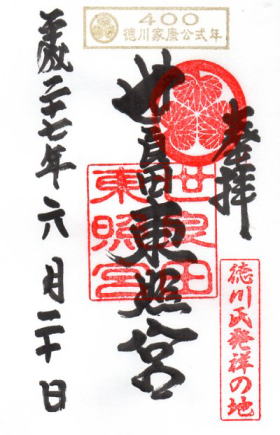 400
徳川家康公式年
奉拝
世良田東照宮
世良田
東照宮
徳川氏発祥の地
平成二十七年六月二十日